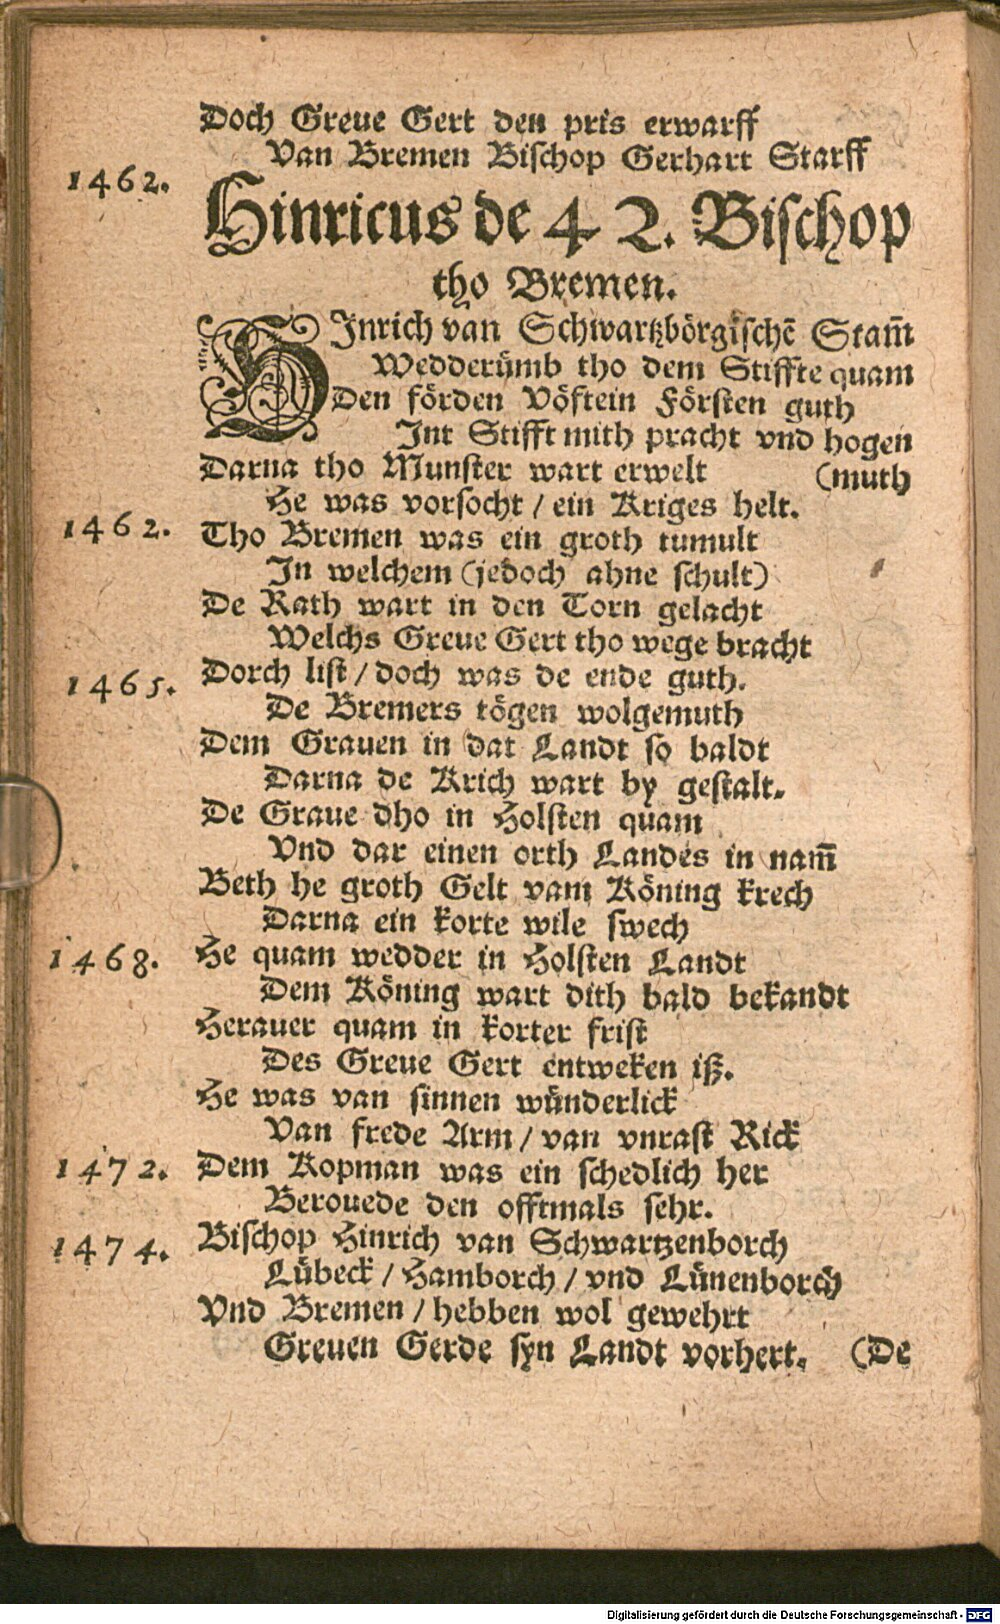 Doch Greve Gert den pris erwarff
Van Bremen Bischop Gerhart Starff
1462.
Hinricus de 42. Bischop
tho Bremen.
HInrich van Schwartzbörgischē Stam̄
Wedderümb tho dem Stiffte quam
Den förden Vöftein Försten guth
Int Stifft mith pracht vnd hogen
Darna tho Munster wart erwelt (muth
He was vorsocht / ein Kriges helt.
1462. Tho Bremen was ein groth tumult
In welchem (jedoch ahne schult)
De Rath wart in den Torn gelacht
Welchs Greve Gert tho wege bracht
1465. Dorch list / doch was de ende guth.
De Bremers tögen wolgemuth
Dem Graven in dat Landt so baldt
Darna de Krich wart by gestalt.
De Grave dho in Holsten quam
Vnd dar einen orth Landes in nam̄
Beth he groth Gelt vam Köning krech
Darna ein korte wile swech
1468. He quam wedder in Holsten Landt
Dem Köning wart dith bald bekandt
Heraver quam in korter frist
Des Greve Gert entweken iß.
He was van sinnen wünderlick
Van frede Arm / van vnrast Rick
1472. Dem Kopman was ein schedlich her
Berovede den offtmals sehr.
1474. Bischop Hinrich van Schwartzenborch
Lübeck / Hamborch / vnd Lünenborch
Vnd Bremen / hebben wol gewehrt
Greven Gerde syn Landt vorhert. (De
Digitalisierung gefördert durch die Deutsche Forschungsgemeinschaft - DFG